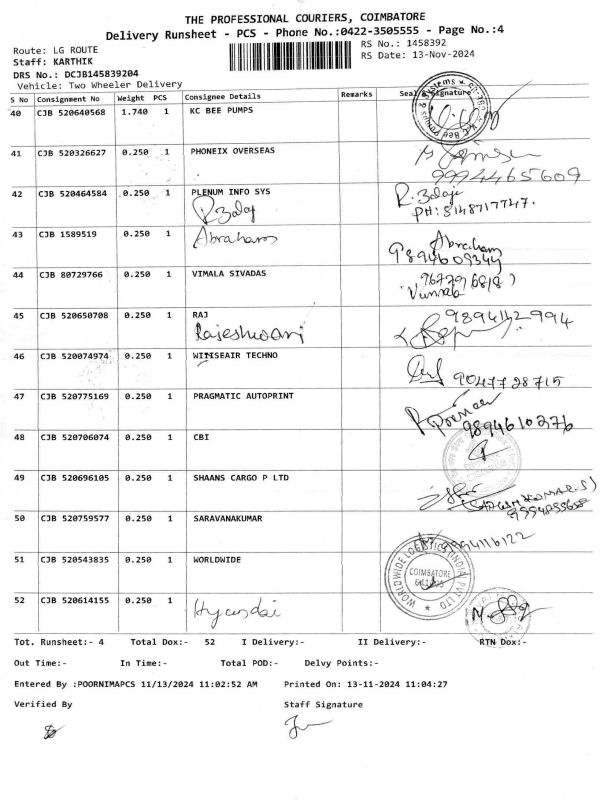 THE PROFESSIONAL COURIERS, COIMBATORE
Delivery Runsheet - PCS - Phone No.:0422-3505555 - Page No.:4
Route: LG ROUTE
RS No.: 1458392
Staff: KARTHIK
RS Date: 13-Nov-2024
DRS No.: DCJB145839204
Vehicle: Two Wheeler Delivery
S No Consignment No Weight PCS Consignee Details Remarks Seal & Signature
40 CJB 520640568 1.740 1 KC BEE PUMPS
41 CJB 520326627 0.250 1 PHONEIX OVERSEAS
9994465609
42 CJB 520464584 0.250 1 PLENUM INFO SYS
R. Balaji
R. Balaji
PH: 8148717747.
43 CJB 1589519 0.250 1
Abraham
Abraham
9894609344
44 CJB 80729766 0.250 1 VIMALA SIVADAS
45 CJB 520650708 1 0.250 1 RAJ
Rajeshwari
9894142994
46 CJB 520074974 0.250 1 WINSEAIR TECHNO
9047728715
47 CJB 520775169 0.250 1 PRAGMATIC AUTOPRINT
9894610276
48 CJB 520706074 0.250 1 CBI
49 CJB 520696105 0.250 1 SHAANS CARGO P LTD
50 CJB 520759577 0.250 1 SARAVANAKUMAR
9994116122
51 CJB 520543835 0.250 1 WORLDWIDE
WORLDWIDE LOGISTICS (INDIA) PVT LTD
COIMBATORE
52 CJB 520614155 0.250 1
Hyundai
Tot. Runsheet:- 4 Total Dox:- 52 I Delivery:- II Delivery:- RTN Dox:-
Out Time:- In Time:- Total POD:- Delvy Points:-
Entered By :POORNIMAPCS 11/13/2024 11:02:52 AM Printed On: 13-11-2024 11:04:27
Verified By Staff Signature